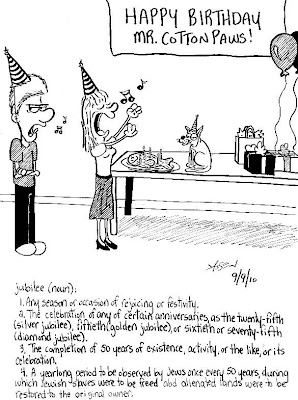 HAPPY BIRTHDAY
MR. COTTON PAWS!
9/9/10
jubilee (noun):
1. Any season or occasion of rejoicing or festivity.
2. The celebration of any of certain anniversaries, as the twenty-fifth
(silver jubilee), fiftieth (golden jubilee), or sixtieth or seventy-fifth
(diamond jubilee).
3. The completion of 50 years of existence, activity, or the like, or its
celebration.
4. A yearlong period to be observed by Jews once every 50 years, during
which Jewish slaves were to be freed abd alienated lands were to be
restored to the original owner.